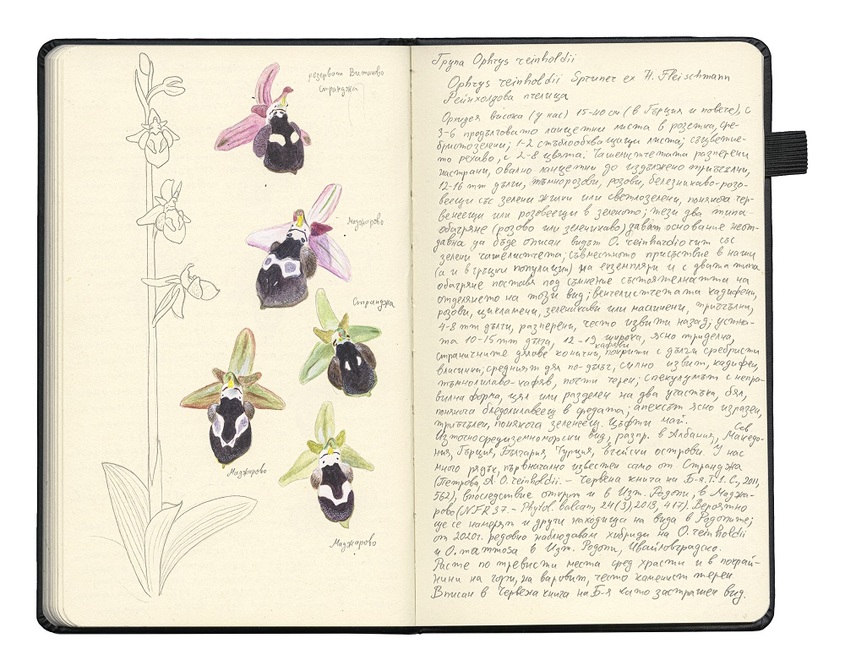 резерват Витаново
Странджа
Маджарово
Странджа
Маджарово
Маджарово
Група Ophrys reinholdii
Ophrys reinholdii Spruner ex H. Fleischmann
Райнхолдова пчелица
Орхидея висока (у нас) 15-40 см (в Гърция и повече), с
3-6 продълговато ланцетни листа в розетка, сре-
бристозелени; 1-2 стъблообхващащи листа; съцветие-
то рехаво, с 2-8 цвята. Чашелистчетата разперени
настрани, овално ланцетни до издължено триъгълни,
12-16 mm дълги, тъмнорозови, розови, белезникаво-розо-
веещи със зелени жилки или светлозелени, понякога чер-
венеещи или розовеещи в зеленото; тези два типа
обагряне (розово или зеленикаво) дават основание неот-
давна да бъде описан видът O. reinhardiorum със
зелени чашелистчета; съвместното присъствие в наши
(а и в гръцки популации) на екземпляри и с двата типа
обагряне поставя под съмнение състоятелността на
отделянето на този вид; венчелистчетата кадифени,
розови, цикламени, зеленикави или маслинени, триъгълни,
4-8 mm дълги, разперени, често извити назад; устна-
та 10-15 mm дълга, 12-19 широка, ясно триделна,
страничните дялове конични, покрити с дълги сребристи
власинки; средният дял по-дълъг, силно извит, кадифен,
тъмнолилаво-кафяв, почти черен; спекулумът с непра-
вилна форма, цял или разделен на два участъка, бял,
понякога бледолилавеещ в средата; апексът ясно изразен,
триъгълен, понякога зеленеещ. Цъфти май.
Източносредиземноморски вид, разпр. в Албания, Сев Македо-
ния, Гърция, България, Турция, егейски острови. У нас
много рядък, първоначално известен само от Странджа
(Петрова, А. O. reinholdii. - Червена книга на Б-я. Т.1. С., 2011,
562), впоследствие открит и в Изт. Родопи, в Маджа-
рово (NFR 37. - Phytol. balcan, 24 (3), 2013, 417). Вероятно
ще се намерят и други находища на вида в Родопите;
от 2020г. редовно наблюдавам хибриди на O. reinholdii
и O. mammosa в Изт. Родопи, Ивайловградско.
Расте по тревисти места сред храсти и в покрай-
нини на гори, на варовит, често каменист терен
Вписан в Червена книга на Б-я като застрашен вид.